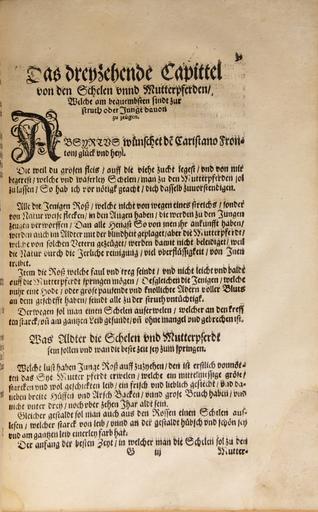 Das dreyzehende Capittel
von den Schelen vnnd Mutterpferden/
Welche am bequembsten sindt zur
struth oder Jungk dauon
zu zeügen.
ABSYRTVS wünschet dē Caristano Fron-
toni glück vnd heyl.
Die weil du grosen fleis / auff die viehe zucht legest / vnd von mir
begerest / welche vnd waserley Schelen / man zu den Mutterpferden sol
zu lassen / So hab ich vor nötig geacht / dich dasselb zuuerstendigen.
Alle die Jenigen Roß / welche nicht von wegen eines streichs / sonder
von Natur weise flecken / in den Augen haben / die werden zu den Jungen
zeugen verworffen / Dan alle Hengst So von men ihr ankunfft haben /
werden auch im Alder mit der blindheit geplaget / aber die Mutterpferde /
welche von solchen Vetern gezeüget / werden damit nicht beleidiget / weil
die Natur durch die Jerliche reinigung / viel oberflüssigkeit / von Inen
treibet.
Item die Roß welche faul vnd treg seindt / vnd nicht leicht vnd baldt
auff die Mutterpferdt springen mögen / Desgleichen die Jenigen / welche
nuhr eine Hode / oder grose pautende vnd knollichte Adern voller Bluts
an dem geschefft haben / seindt alle zu der struth vntüchtigk.
Derwegen sol man einen Schelen auserwelen / welcher an den krefften
starck / vñ am gantzen Leib gesundt / vñ ohne mangel vnd gebrechen ist.
Was Aldter die Schelen vnd Mutterpferdt
sein sollen vnd wan die beste zeit sey zum springen.
Welche lust haben Junge Roß auff zuzyehen / den ist erstlich vonnöten
das Sye Mutter pferdt erwelen / welche ein mittelmessige gröse /
starcken vnd wol geschickten leib / ein frisch vnd lieblich gesicht / vnd da-
neben breite Hüffen vnd Arsch Backen / vnnd grose Bruch haben / vnd
nicht vnter drey / noch vber zehen Jhar aldt sein.
Gleicher gestaldt sol man auch aus den Rossen einen Schelen auß-
lesen / welcher starck von leib / vnnd an der gestaldt hübsch vnd schön sey
vnd am gantzen leib einerley farb hat.
Der anfang der besten Zeyt / in welcher man die Schelen sol zu den
G iij Mutter-